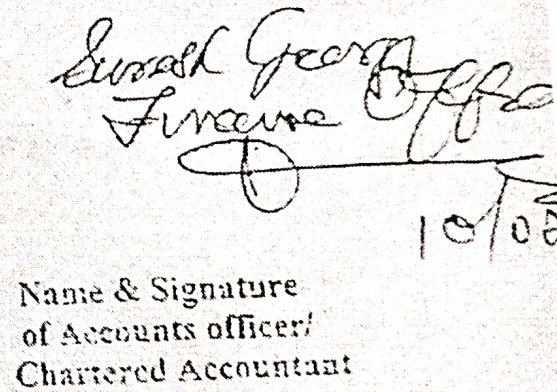 Suresh George
Finance Office
10/08
Name & Signature
of Accounts officer/
Chartered Accountant